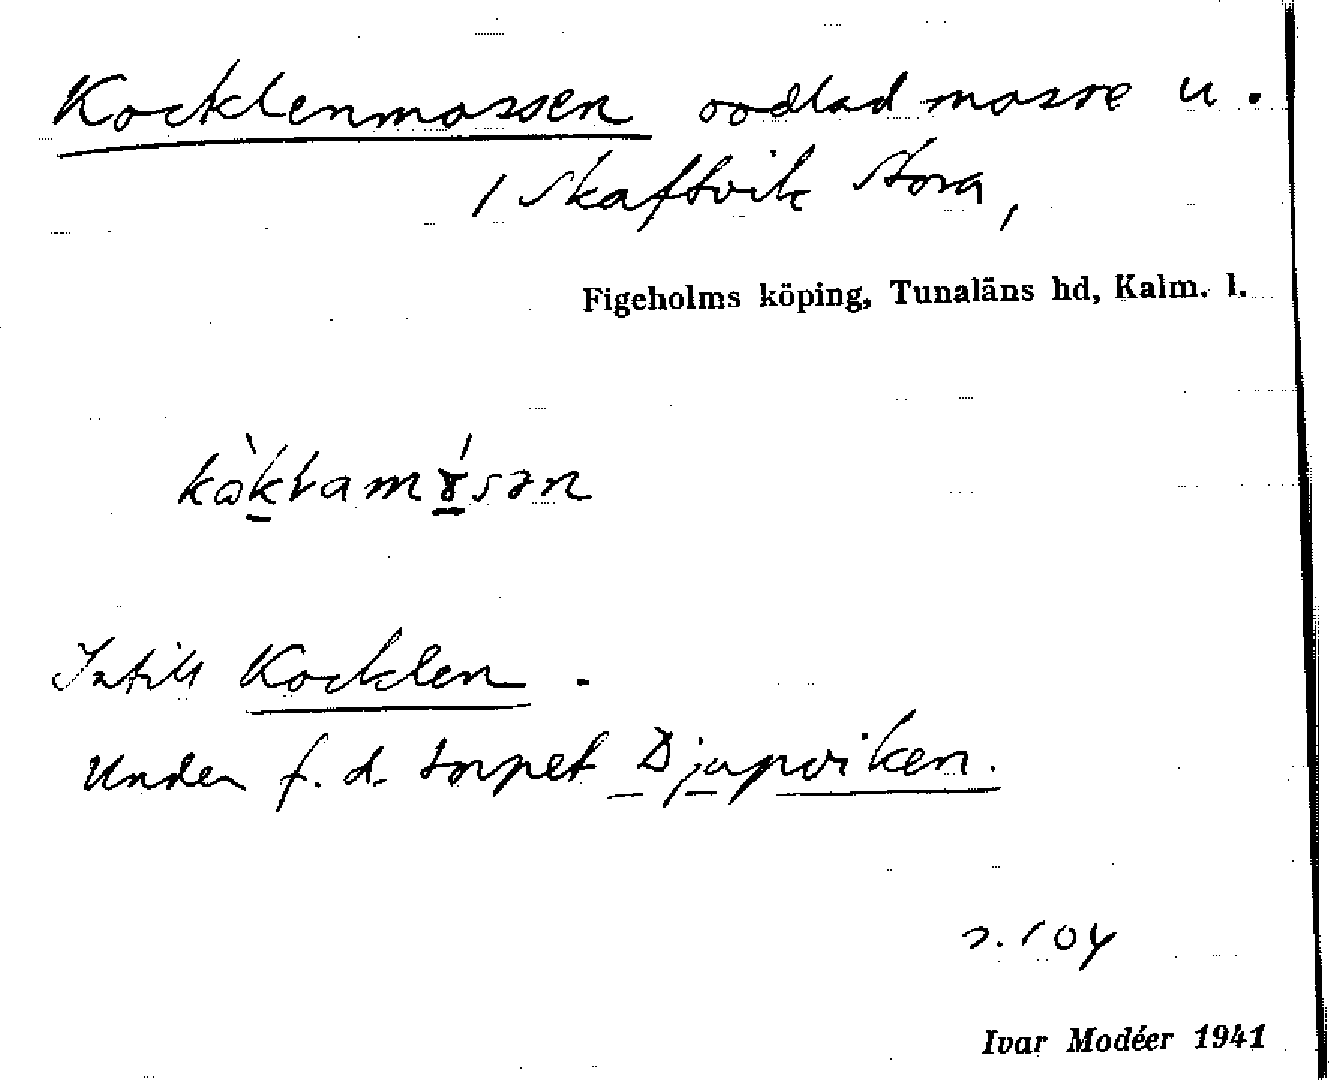 Kocklenmossen oodlad mosse u.
/ Skaftvik Stora,
Figeholms köping, Tunaläns hd, Kalm. l.
Intill Kocklen.
Under f. d. torpet Djupviken.
s. 104
Ivar Modéer 1941